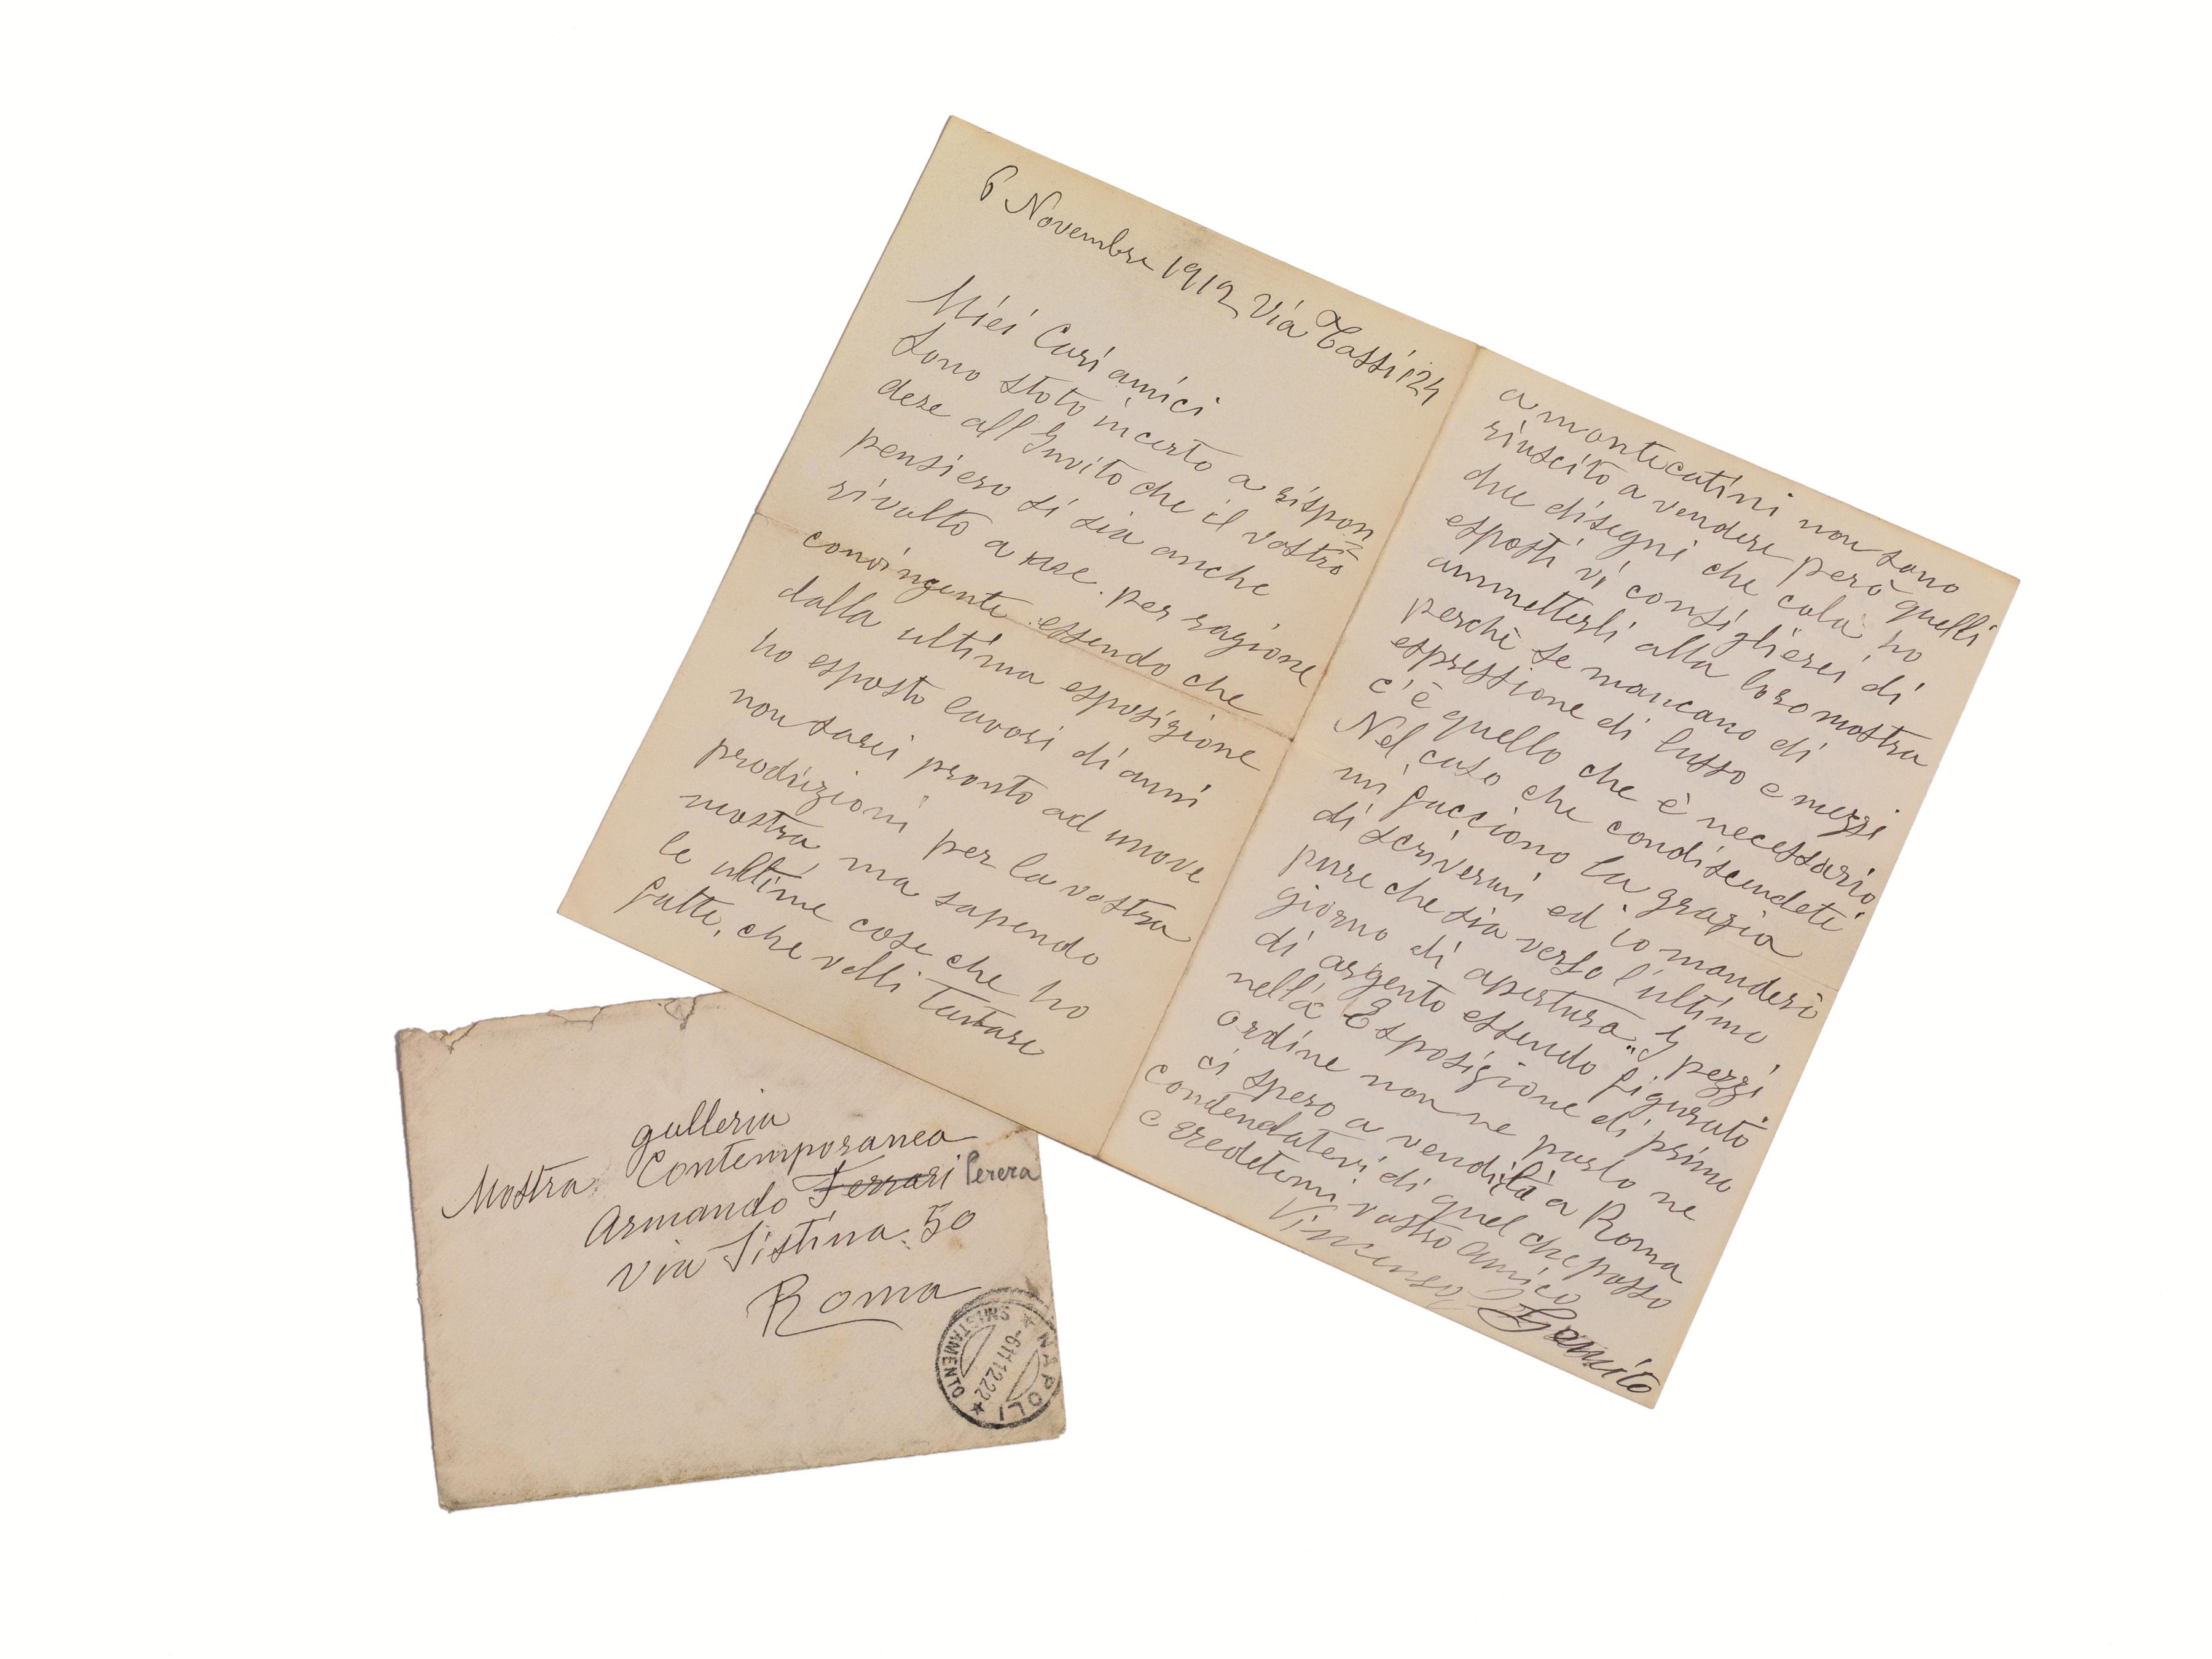 6 Novembre 1912 Via Tassi 124
Miei Cari amici
Sono stato incerto a rispon
dere all Invito che il vostro
pensiero si sia anche
rivolto a me. per ragione
convingente essendo che
dalla ultima esposizione
ho esposto lavori di anni
non sarei pronto ad nuove
produzioni per la vostra
mostra, ma sapendo
le ultime cose che ho
fatte, che volli tastare
a montecatini non sono
riuscito a vendere però quelli
due disegni che colà ho
esposti vi consiglierei di
ammetterli alla loro mostra
perchè se mancano di
espressione di lusso e mezzi
c'è quello che è necessario,
Nel caso che condiscendete
mi facciano la grazia
di scrivermi ed io manderò
pure che sia verso l'ultimo
giorno di apertura I pezzi
di argento essendo figurato
nella Esposizione di primo
ordine non ne parlo ne
ci spero a vendita a Roma
contendatevi di quel che posso
e credetemi vostro amico
Vincenzo Gemito
galleria
Mostra Contemporanea
Armando Ferrari Perera
via Sistina 50
Roma
NAPOLI
SMISTAMENTO
-6 11 12.22